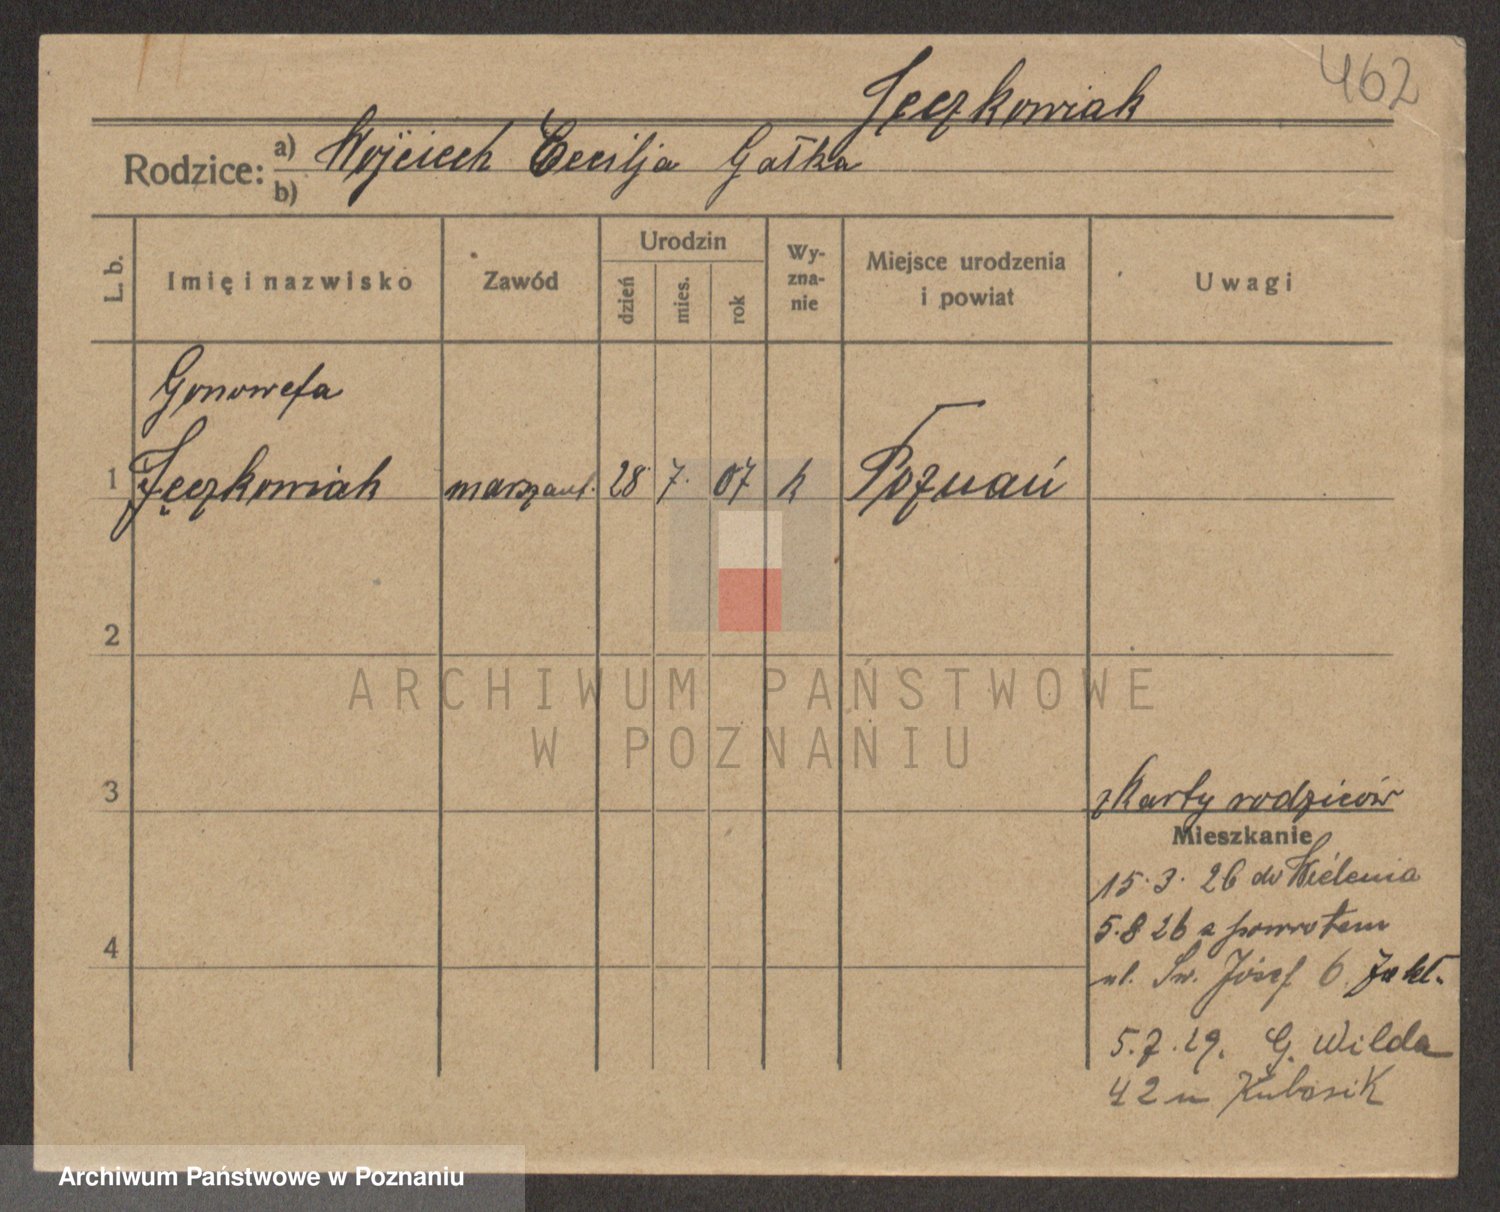 462
Jęczkowiak
Rodzice: a) Wojciech Cecilja Gałka
b)
L. b. Imię i nazwisko Zawód Urodzin dzień mies. rok Wy-zna-nie Miejsce urodzenia i powiat Uwagi
Gonowefa
1 Jęczkowiak 28 7. 07 k Poznań
2
ARCHIWUM PAŃSTWOWE
W POZNANIU
3
z Karty rodziców
Mieszkanie
15.3.26 do Wielenia
4 5.8 26 z powrotem
ul. Św. Józef 6
5.7.29. G. Wilda
42 u Kubasik
Archiwum Państwowe w Poznaniu